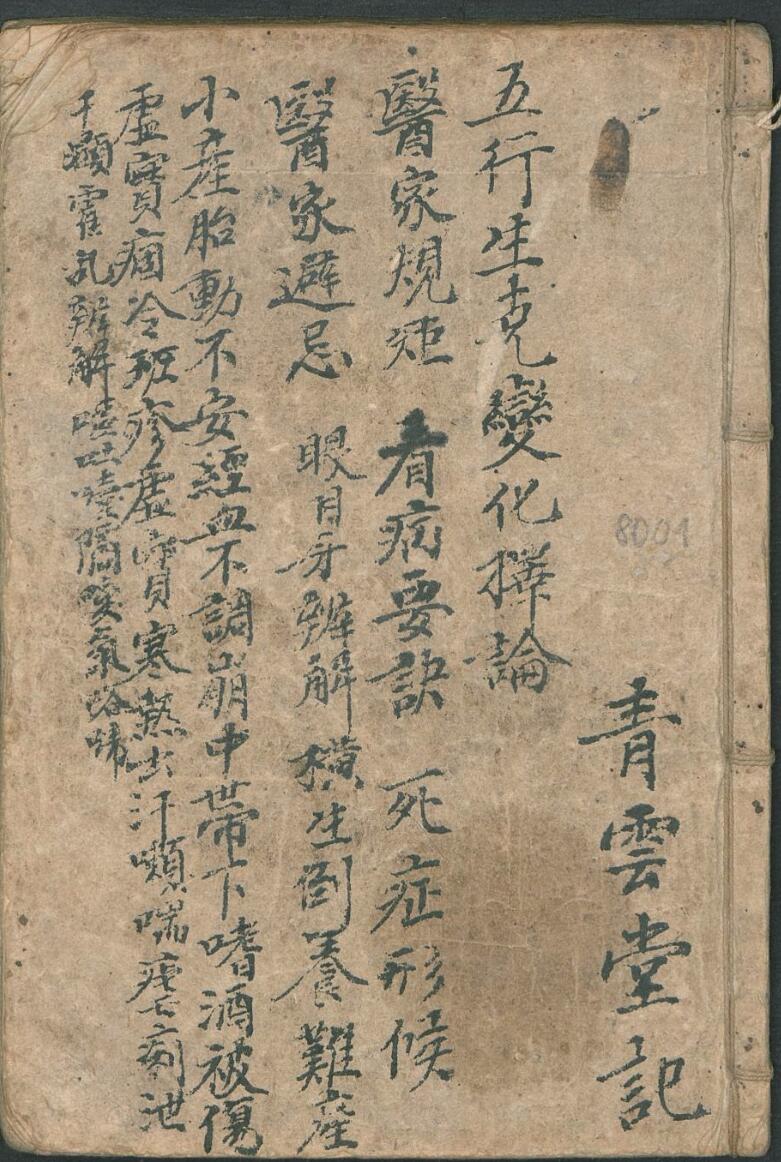 青雲堂記
8001
五行生克變化撰論
醫家規矩 看病要訣 死症形候
醫家避忌 眼目牙辨解 橫生倒養難產
小產胎動不安經血不調崩中帶下嗜酒被傷
虛實痼冷班疹虛實寒熱出汗嗽喘瘧痢泄
霍乱辨解 吐 膈 氣